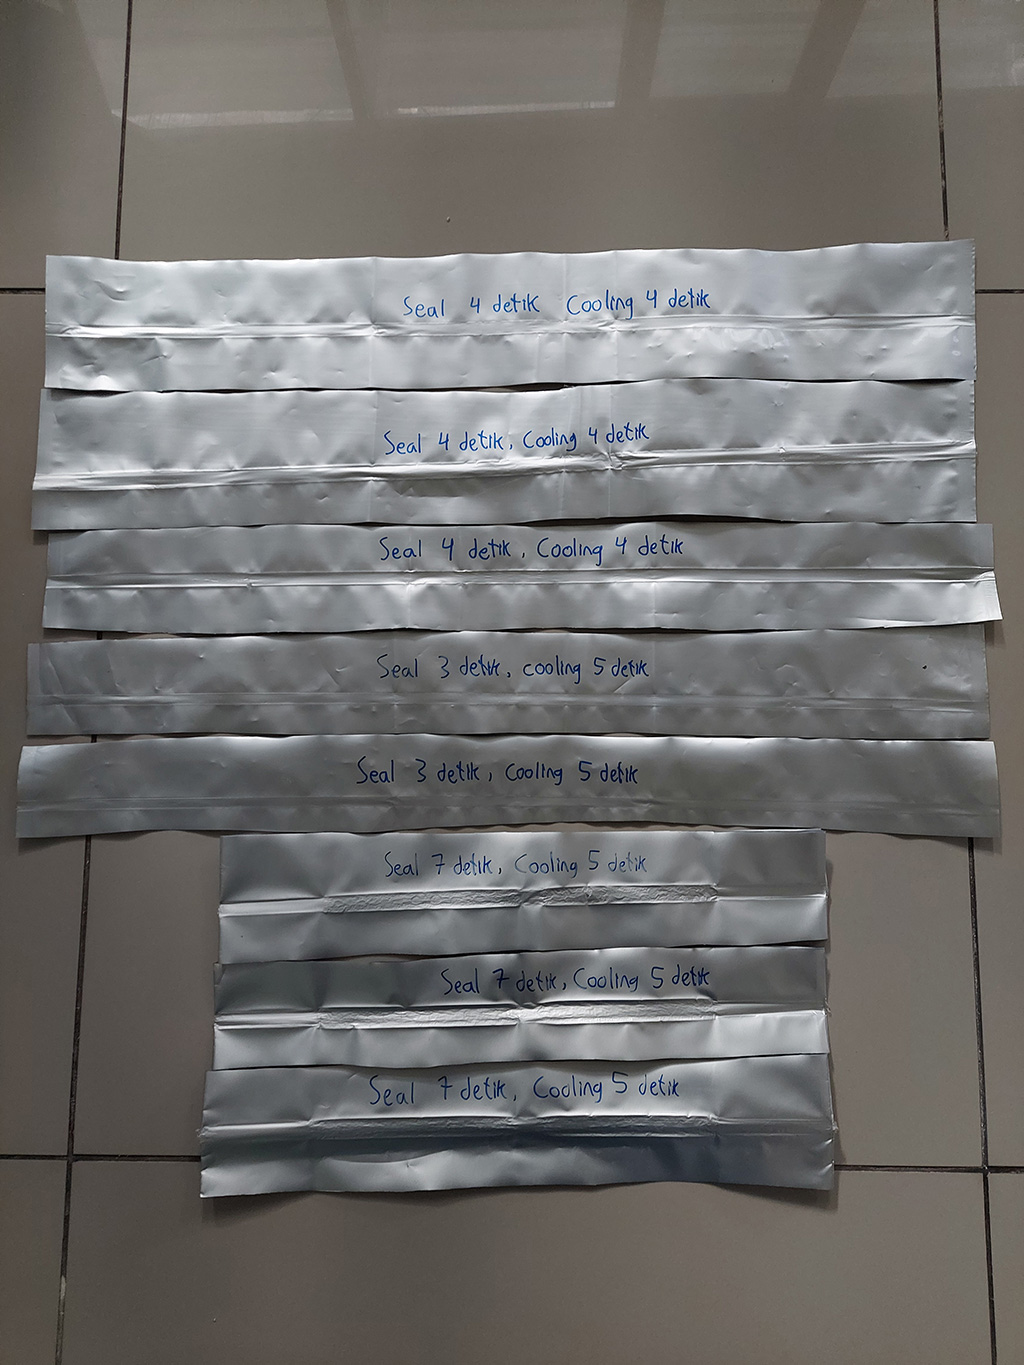 Seal 4 detik Cooling 4 detik
Seal 4 detik, Cooling 4 detik
Seal 4 detik, Cooling 4 detik
Seal 3 detik, cooling 5 detik
Seal 3 detik, Cooling 5 detik
Seal 7 detik, Cooling 5 detik
Seal 7 detik, Cooling 5 detik
Seal 7 detik, Cooling 5 detik